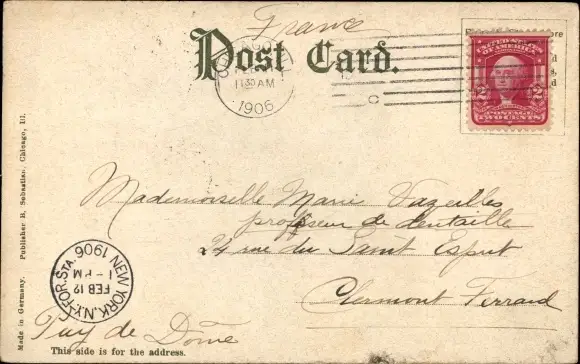 France
Post Card.
CHICAGO
11 30 AM
1906
UNITED STATES
OF AMERICA
2 2
POSTAGE
TWO CENTS
Mademoiselle Marie Vazeilles
professeur de dentelle
24 rue du Saint Esprit
Clermont Ferrand
Puy de Dôme
NEW YORK, N.Y. FOR. STA. 1906
FEB 12
1 - PM
This side is for the address.
Made in Germany. Publisher B. Sebastian, Chicago, Ill.